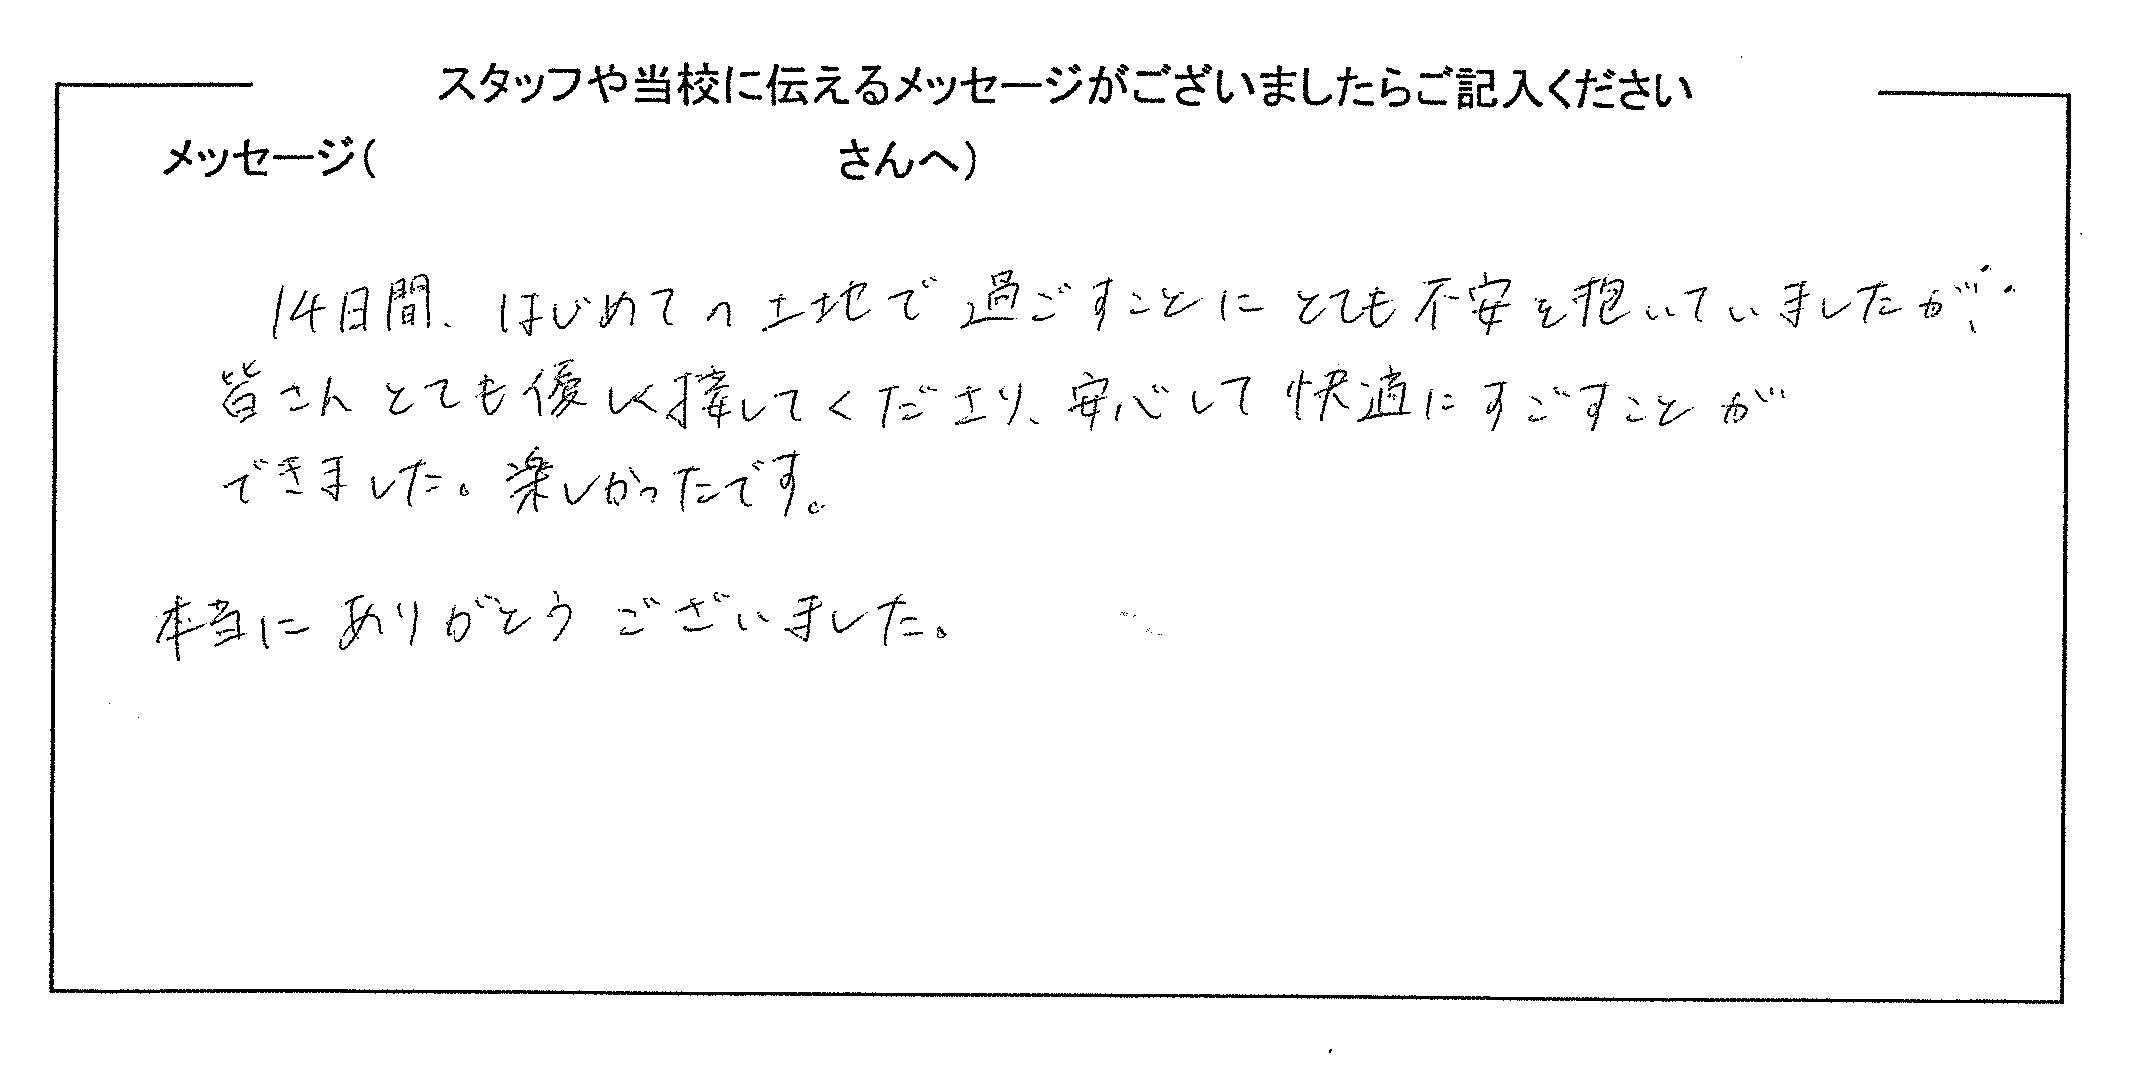 スタッフや当校に伝えるメッセージがございましたらご記入ください
メッセージ(　　　　　　　　　　さんへ)
14日間、はじめての土地で過ごすことにとても不安を抱いていましたが、
皆さんとても優しく接してくださり、安心して快適にすごすことが
できました。楽しかったです。
本当にありがとうございました。